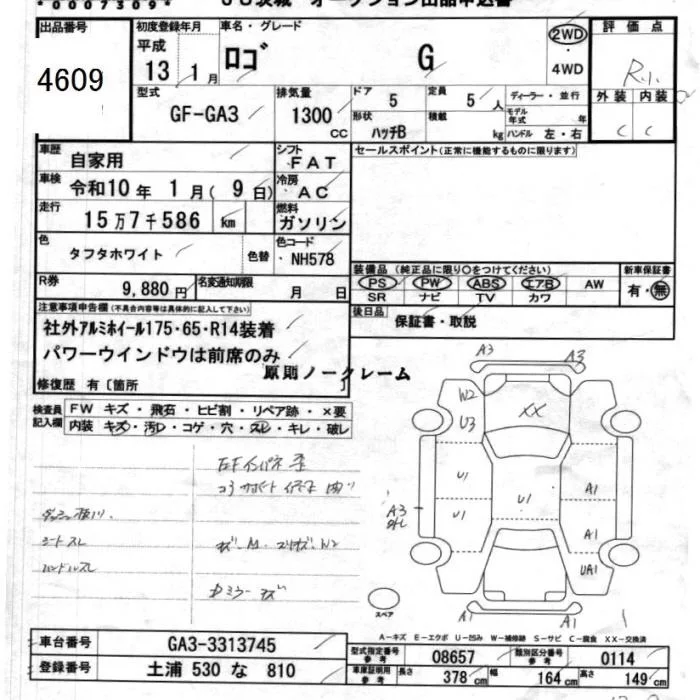 *00073094*
出品番号
4609
初度登録年月
平成
13 1月
車名・グレード
ロゴ G
2WD
・
4WD
評価点
R
外装 内装
C C
型式
GF-GA3
排気量
1300
CC
ドア 5
形状 ハッチB
定員 5 人
積載 kg
ディーラー・並行
モデル年式 年
ハンドル 左・右
車歴
自家用
シフト
FAT
セールスポイント(正常に機能するものに限ります)
車検
令和10年 1月( 9日)
冷房
AC
走行
15万7千586 km
燃料
ガソリン
色
タフタホワイト
色替
色コード
NH578
装備品 (純正品に限り○をつけてください)
PS PW ABS エアB AW
SR ナビ TV カワ
新車保証書
有・無
R券
9,880円
名変通知期限
月 日
後日品
保証書・取説
注意事項申告欄 (不具合内容等は具体的に記入して下さい)
社外アルミホイール175・65・R14装着
パワーウインドウは前席のみ
原則ノークレーム
修復歴 有〔箇所 〕
検査員記入欄
FW キズ・飛石・ヒビ割・リペア跡・×要
内装 キズ・汚レ・コゲ・穴・スレ・キレ・破レ
シートスレ
ハンドルスレ
A3 A3
W2
U3
XX
U1
U1
U1
A3
A1
A1
UA1
A1 A1
スペア
A-キズ E-エクボ U-凹み W-補修跡 S-サビ C-腐食 XX-交換済
車台番号
GA3-3313745
登録番号
土浦 530 な 810
型式指定番号
参考
08657
類別区分番号
参考
0114
車庫証明用
参考
長さ 378 cm
幅 164 cm
高さ 149 cm